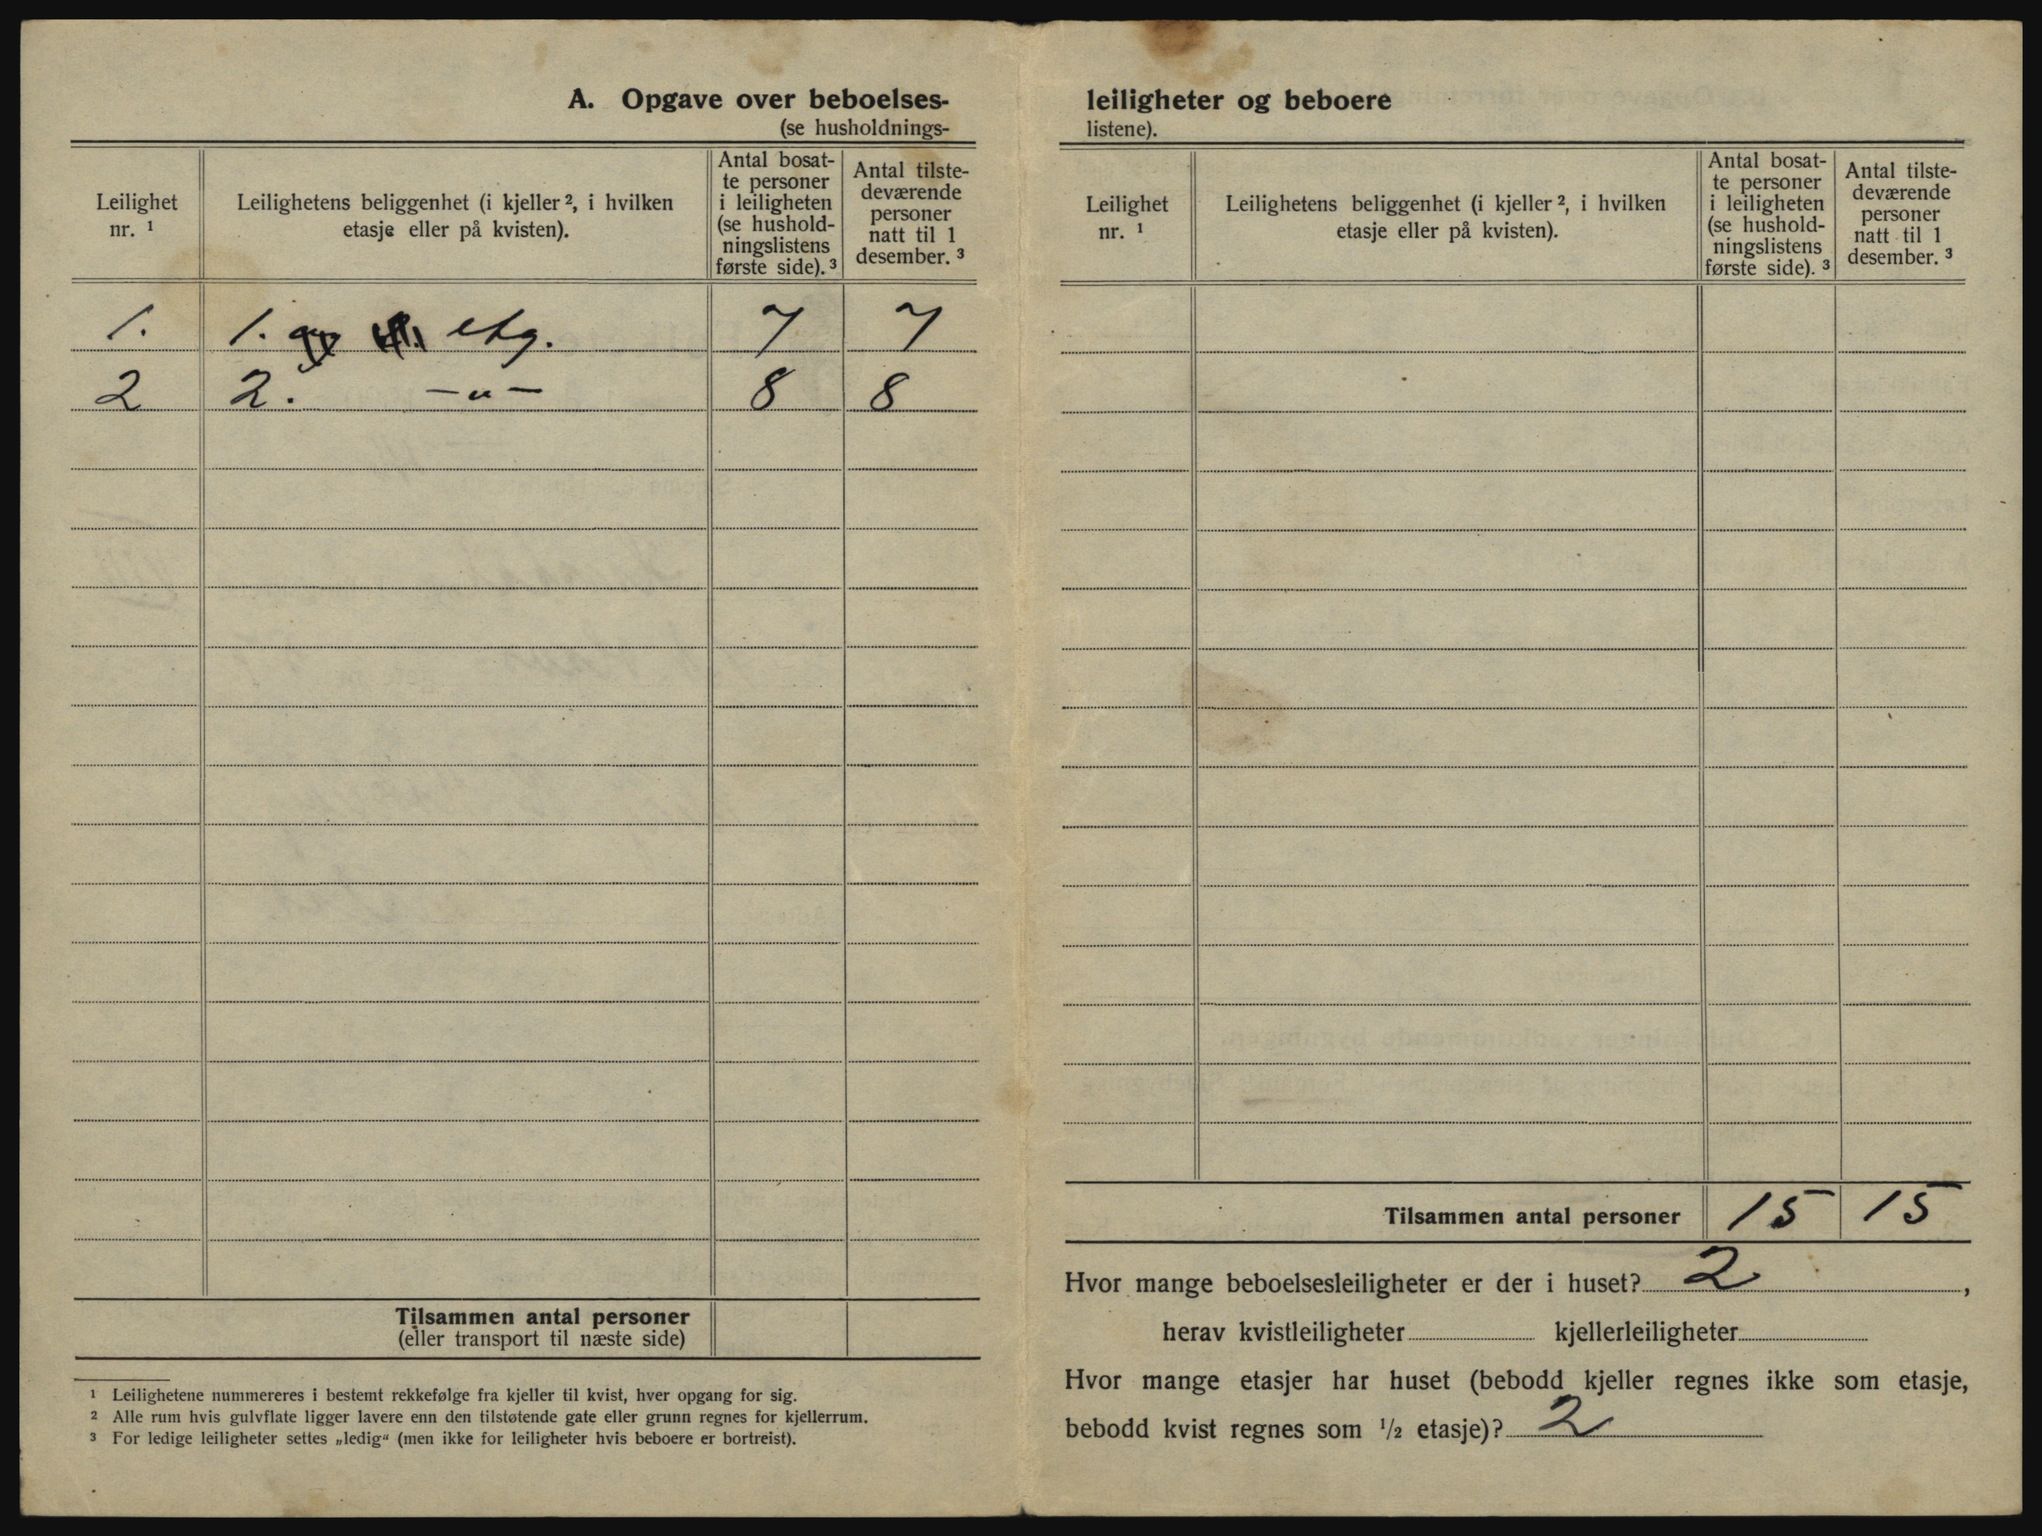 A. Opgave over beboelses-
(se husholdnings-
Leilighet nr. ¹
Leilighetens beliggenhet (i kjeller ², i hvilken etasje eller på kvisten).
Antal bosat-
te personer
i leiligheten
(se hushold-
ningslistens
første side). ³
Antal tilste-
deværende
personer
natt til 1
desember. ³
1. 1. etg. 7 7
2 2. —"— 8 8
Tilsammen antal personer
(eller transport til næste side)
¹ Leilighetene nummereres i bestemt rekkefølge fra kjeller til kvist, hver opgang for sig.
² Alle rum hvis gulvflate ligger lavere enn den tilstøtende gate eller grunn regnes for kjellerrum.
³ For ledige leiligheter settes „ledig“ (men ikke for leiligheter hvis beboere er bortreist).
leiligheter og beboere
listene).
Leilighet nr. ¹
Leilighetens beliggenhet (i kjeller ², i hvilken etasje eller på kvisten).
Antal bosat-
te personer
i leiligheten
(se hushold-
ningslistens
første side). ³
Antal tilste-
deværende
personer
natt til 1
desember. ³
Tilsammen antal personer 15 15
Hvor mange beboelsesleiligheter er der i huset? 2 ,
herav kvistleiligheter kjellerleiligheter
Hvor mange etasjer har huset (bebodd kjeller regnes ikke som etasje,
bebodd kvist regnes som ¹/₂ etasje)? 2